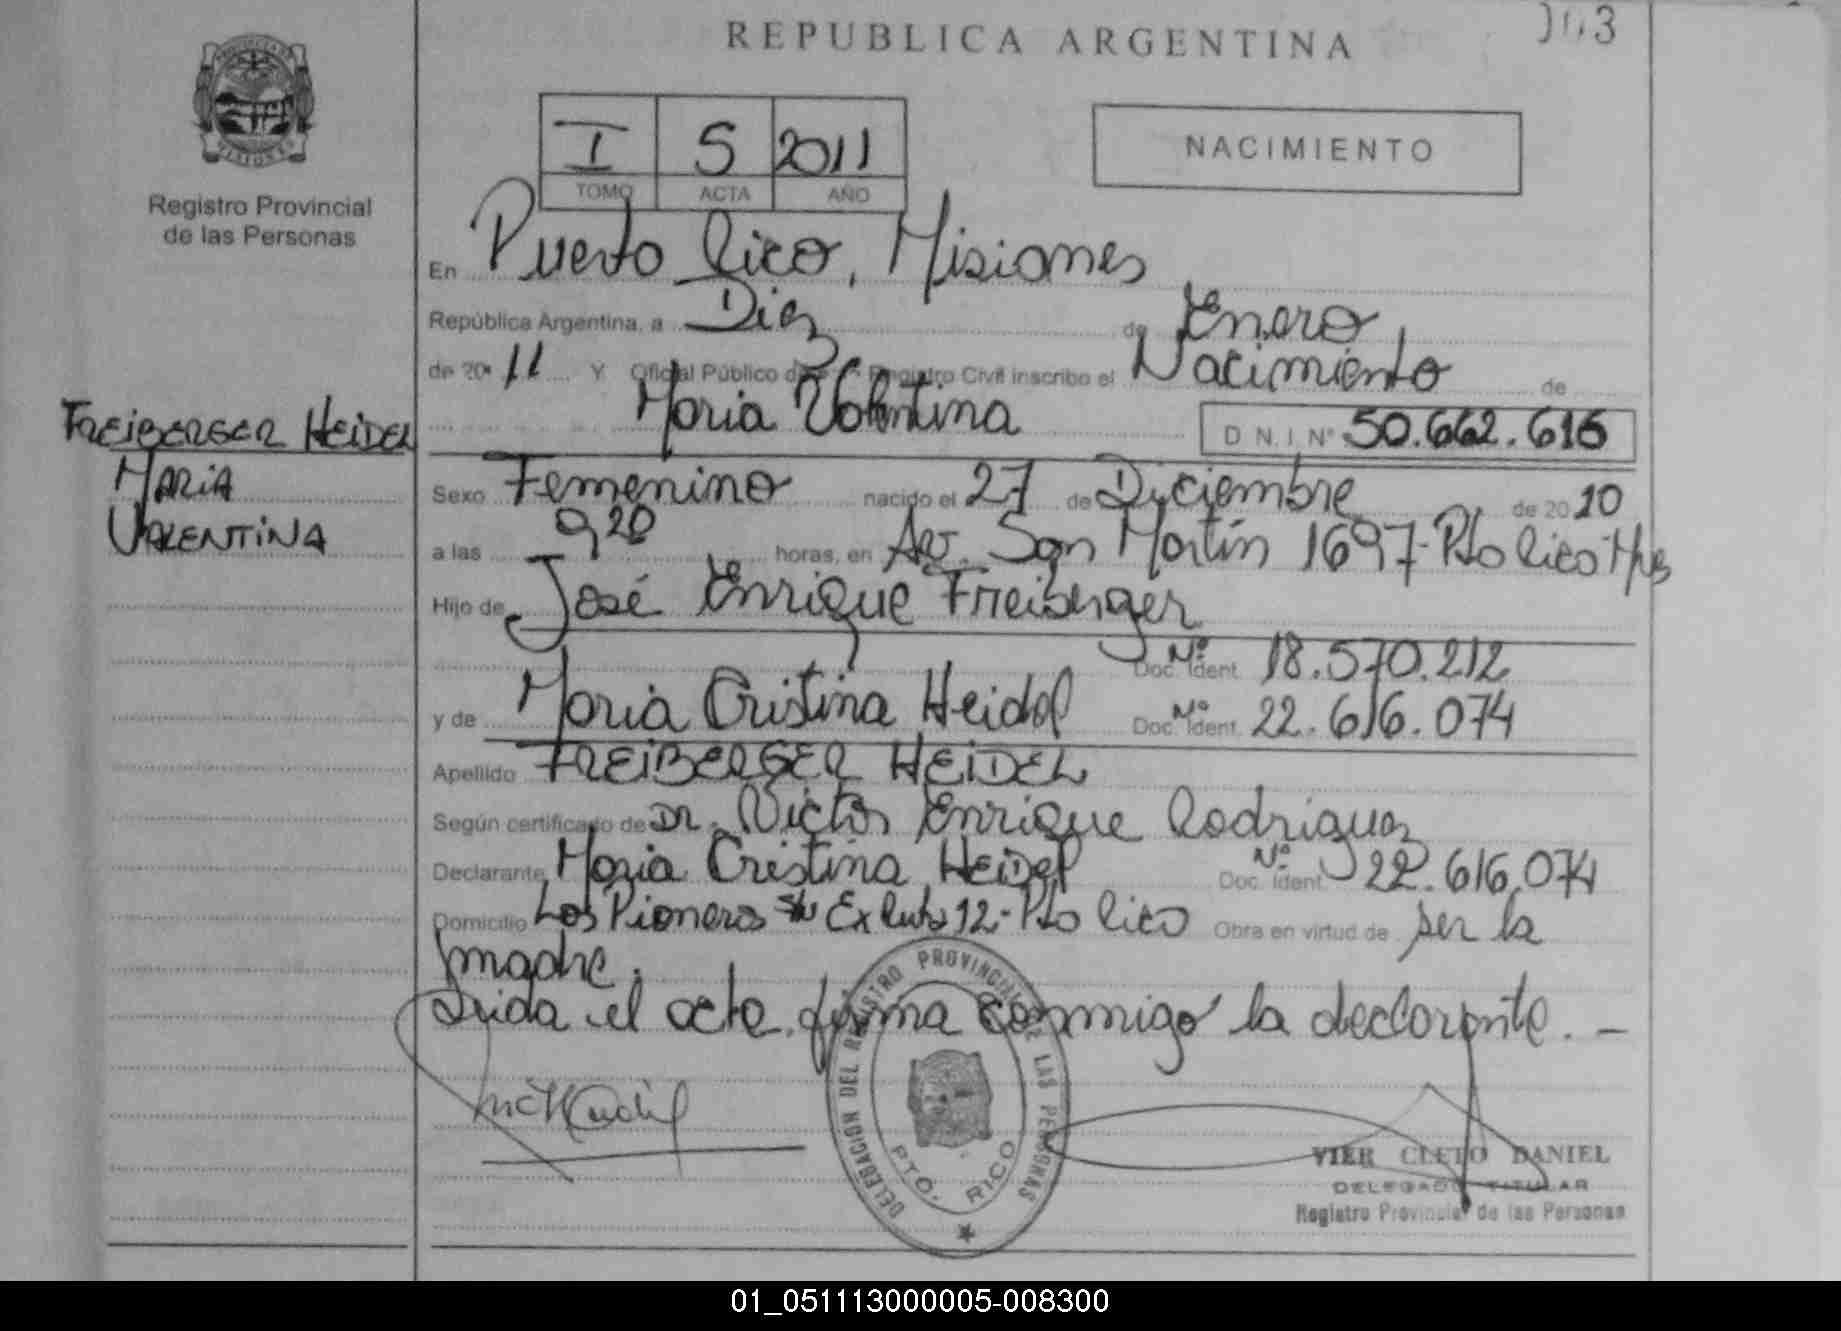 REPUBLICA ARGENTINA
PROVINCIA DE
MISIONES
Registro Provincial
de las Personas
I 5 2011
TOMO ACTA AÑO
NACIMIENTO
En Puerto Rico, Misiones
República Argentina, a Diez de Enero
de 20 11 Y Oficial Público de Registro Civil inscribo el Nacimiento de
Maria Valentina D N. I. Nº 50.662.616
FREIBERGER HEIDEL
MARIA
VALENTINA
Sexo Femenino nacido el 27 de Diciembre de 20 10
a las 9 20 horas, en Av. San Martín 1697-Pto Rico Mnes
Hijo de José Enrique Freiberger
Doc. Ident. Nº 18.570.212
y de Maria Cristina Heidel Doc. Ident. Nº 22.616.074
Apellido FREIBERGER HEIDEL
Según certificado de Dr. Victor Enrique Rodriguez
Declarante Maria Cristina Heidel Doc. Ident. Nº 22.616.074
Domicilio Los Pioneros s/n Ex Ruta 12-Pto Rico Obra en virtud de ser la
madre.
Leida el acta, firma conmigo la declarante. -
DELEGACION DEL REGISTRO PROVINCIAL DE LAS PERSONAS
PTO. RICO
VIER CLETO DANIEL
DELEGADO TITULAR
Registro Provincial de las Personas
01_051113000005-008300